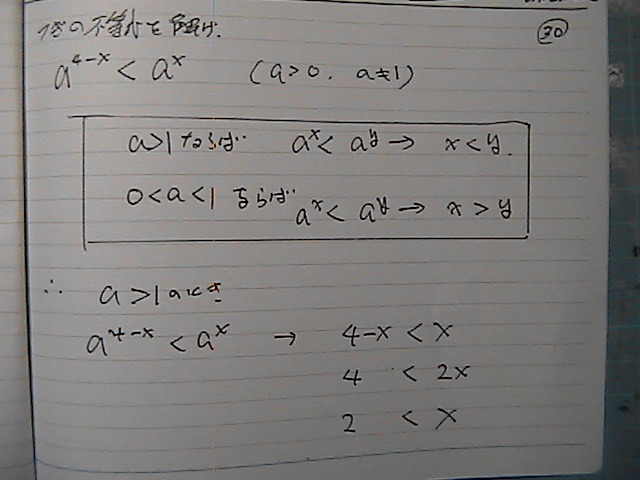 次の不等式を解け.
㉚
a^{4-x} < a^x (a>0, a≠1)
a>1ならば a^x < a^y → x<y.
0<a<1ならば a^x < a^y → x>y
∴ a>1のとき
a^{4-x} < a^x → 4-x < x
4 < 2x
2 < x